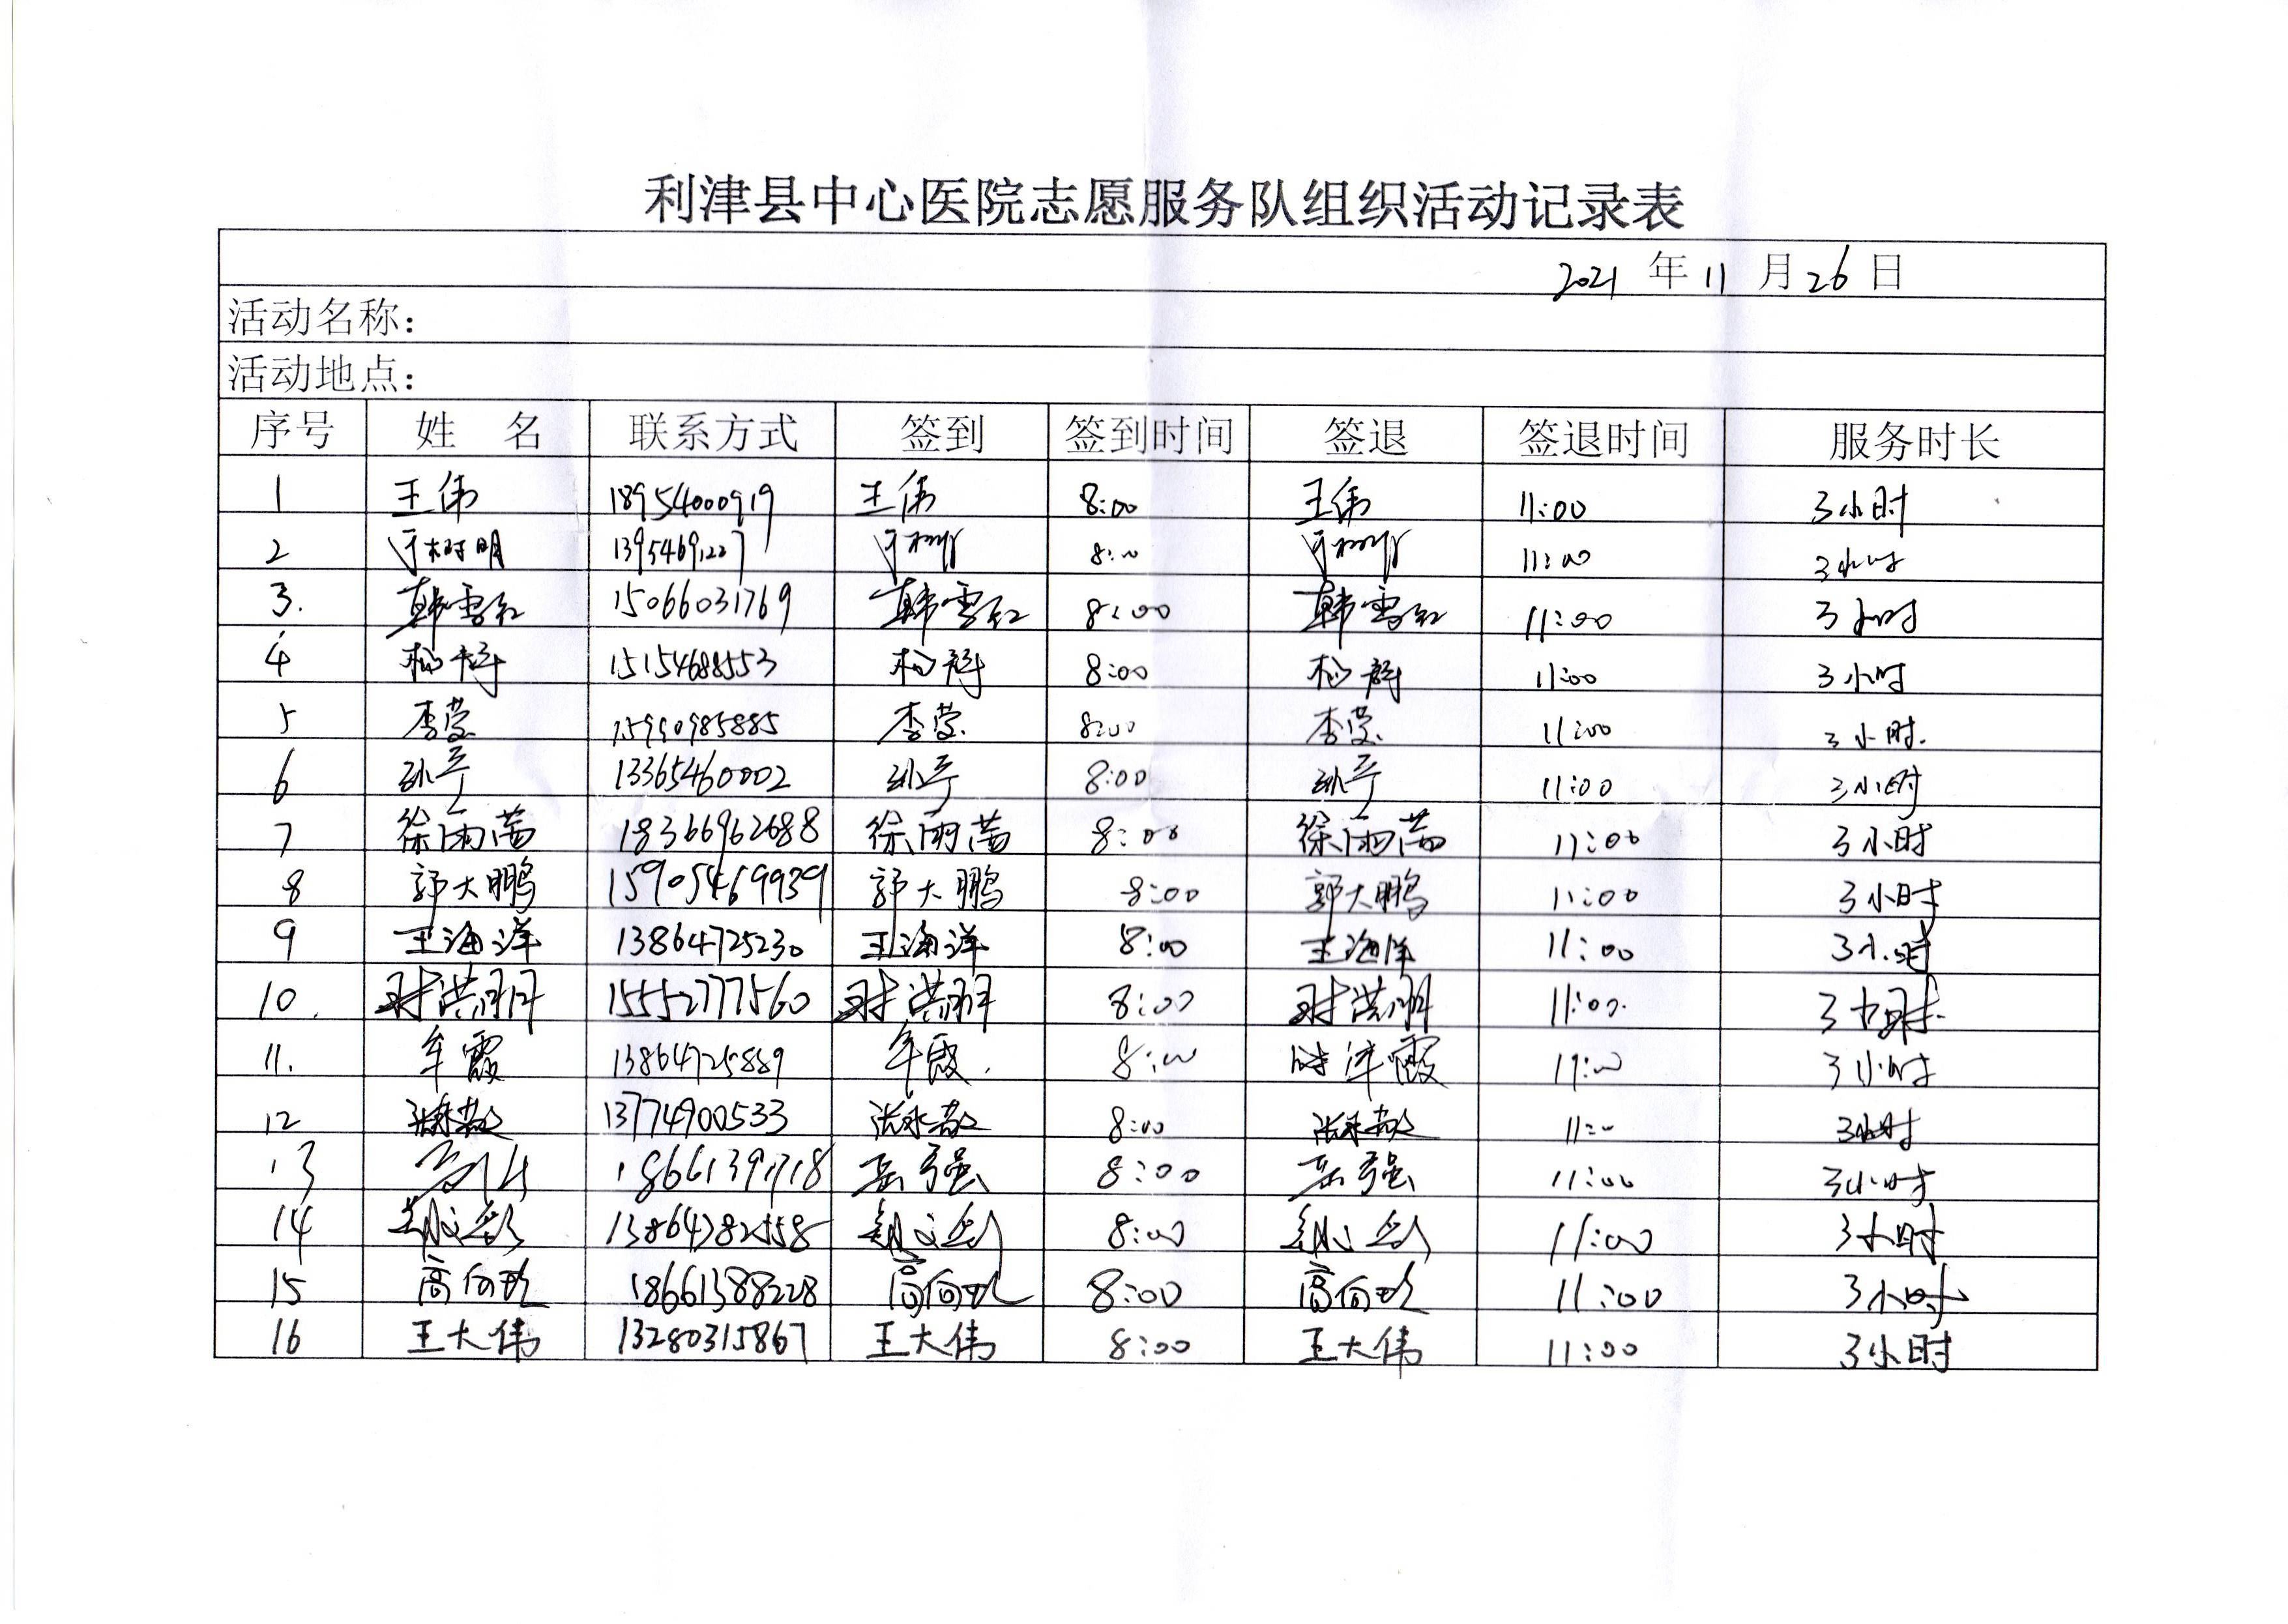 利津县中心医院志愿服务队组织活动记录表
2021 年 11 月 26 日
活动名称：
活动地点：
序号 姓 名 联系方式 签到 签到时间 签退 签退时间 服务时长
1 王伟 18954000919 王伟 8:00 王伟 11:00 3小时
2 于树明 13954691227 8:00 11:00 3小时
3. 韩雪红 15066031769 韩雪红 8:00 韩雪红 11:00 3小时
4 15154688553 8:00 11:00 3小时
5 李莹 15990985885 李莹 8:00 李莹 11:00 3小时.
6 13365460002 8:00 11:00 3小时
7 徐雨茜 18366962688 徐雨茜 8:00 徐雨茜 11:00 3小时
8 郭大鹏 15905469939 郭大鹏 8:00 郭大鹏 11:00 3小时
9 王海洋 13864725230 王海洋 8:00 王海洋 11:00 3小时
10. 15552777560 8:00 11:00. 3小时.
11. 牟霞 13864725889 牟霞. 8:00 牟霞 11:00 3小时
12 13774900533 8:00 11:00 3小时
13 18661391718 岳强 8:00 岳强 11:00 3小时
14 8:00 11:00 3小时
15 18661388228 8:00 11:00 3小时
16 王大伟 13280315867 王大伟 8:00 王大伟 11:00 3小时